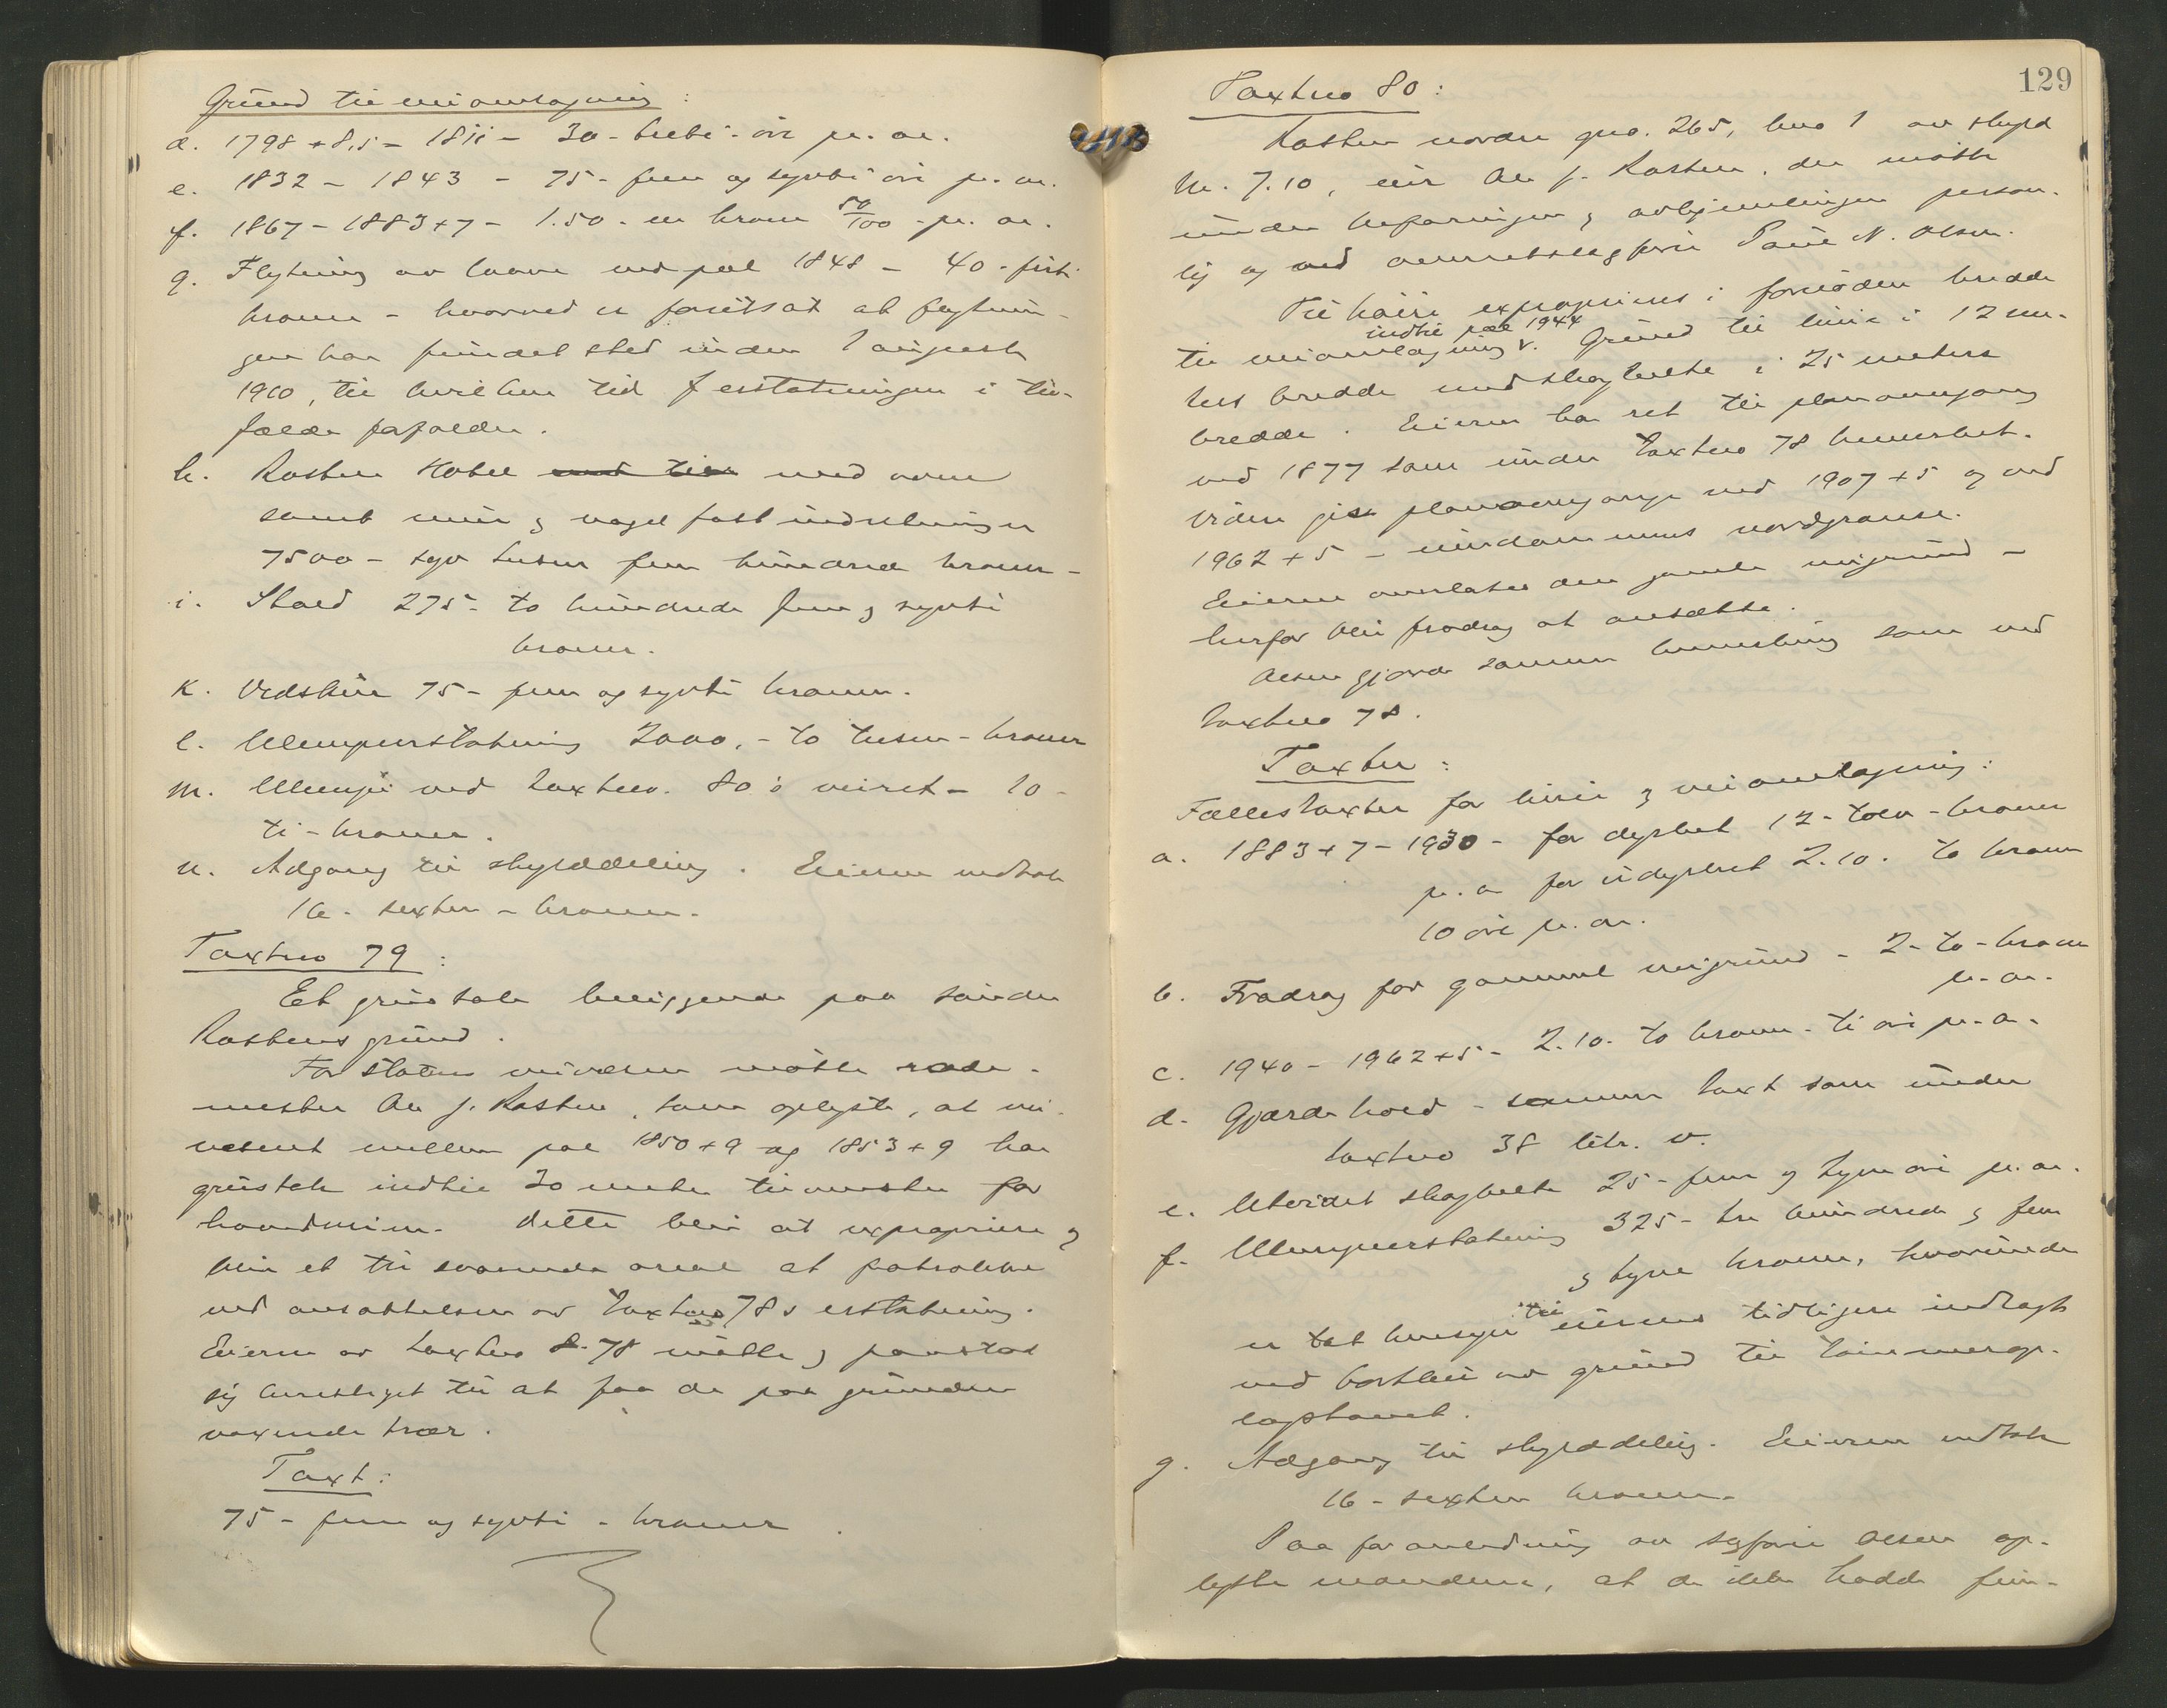 Grund til veiomlægning:
d. 1798+8,5 - 1811 - 30 - treti - øre pr. m.
e. 1832 - 1843 - 75 - fem og sytti øre pr. m.
f. 1867 - 1883+7 - 1.50 - en krone 50/100 - pr. m.
g. Flytning av laave ved pæl 1848 - 40 - firti
kroner - hvorved er forutsat at flytnin-
gen har fundet sted inden 1 august
1910, til hvilken tid erstatningen i til-
fælde forfalder.
h. Kosten Hotel med
samt mur og væg fast indretninger
7500 - syv tusen fem hundrede kroner -
i. Stald 275 - to hundrede fem og sytti
kroner.
k. Vedskur 75 - fem og sytti kroner.
l. Ulempeerstatning 2000,- to tusen - kroner
m. Ulempe ved taxtno. 80's veiret - 10 -
ti - kroner.
n. Adgang til skylddeling. Eieren vedtok
16 - sexten - kroner.
Taxtno 79:
Et grustak beliggende paa søndre
Kostens grund.
For statens veivæsen møtte rode-
mester Ole J. Kosten, som oplyste, at vei-
vesenet mellem pæl 1850+9 og 1853+9 har
grustak indtil 30 meter tilvenstre for
hovedlinien. Dette blir at expropriere og
blir et tilsvarende areal at fratrække
ved ansættelsen av taxtno 78s erstatning.
Eieren av taxtno 78 møtte og paastod
sig berettiget til at faa de paa grunden
voxende trær.
Taxt:
75 - fem og sytti - kroner
129
Taxtno 80:
Kosten nordre gno. 265, bno 1 av skyld
M. 7.10, eier Ole J. Kosten, der møtte
under befaringen og avhjemlingen person-
lig og ved overretssagfører Paul N. Olsen.
Til baere exproprieres i fornøden bredde
til veiomlægning indtil pæl 1944. Grund til linie i 12 me-
ters bredde med skogbelte i 25 meters
bredde. Eieren har ret til planovergang
ved 1877 som under taxtno 78 bemerket.
Videre gis planovergange ved 1907+5 og ved
1962+5 - eiendommens nordgrænse.
Eieren overlates den gamle veigrund -
herfor blir fradrag at ansætte.
Olsen gjorde samme bemerkning som ved
taxtno 78.
Taxter:
Fællestaxter for linie og veiomlægning:
a. 1883+7 - 1930 - for dyrket 12 - tolv - kroner
pr. m for udyrket 2.10. to kroner
10 øre pr. m.
b. Fradrag for gammel veigrund - 2 - to - kroner
pr. m.
c. 1940 - 1962+5 - 2.10. to kroner - ti øre pr. m.
d. Gjærdehold - samme taxt som under
taxtno 38 litr. v.
e. Utvidet skogbelte 25 - fem og tyve øre pr. m.
f. Ulempeerstatning 325 - tre hundrede og fem
og tyve kroner, hvorunder
er tat hensyn til eierens tidligere indtægt
ved bortleie av grund til tømmerop-
lagstomt.
g. Adgang til skylddeling. Eieren vedtok
16 - sexten kroner.
Paa foranledning av sagfører Olsen op-
lyste mændene, at de ikke hadde fun-